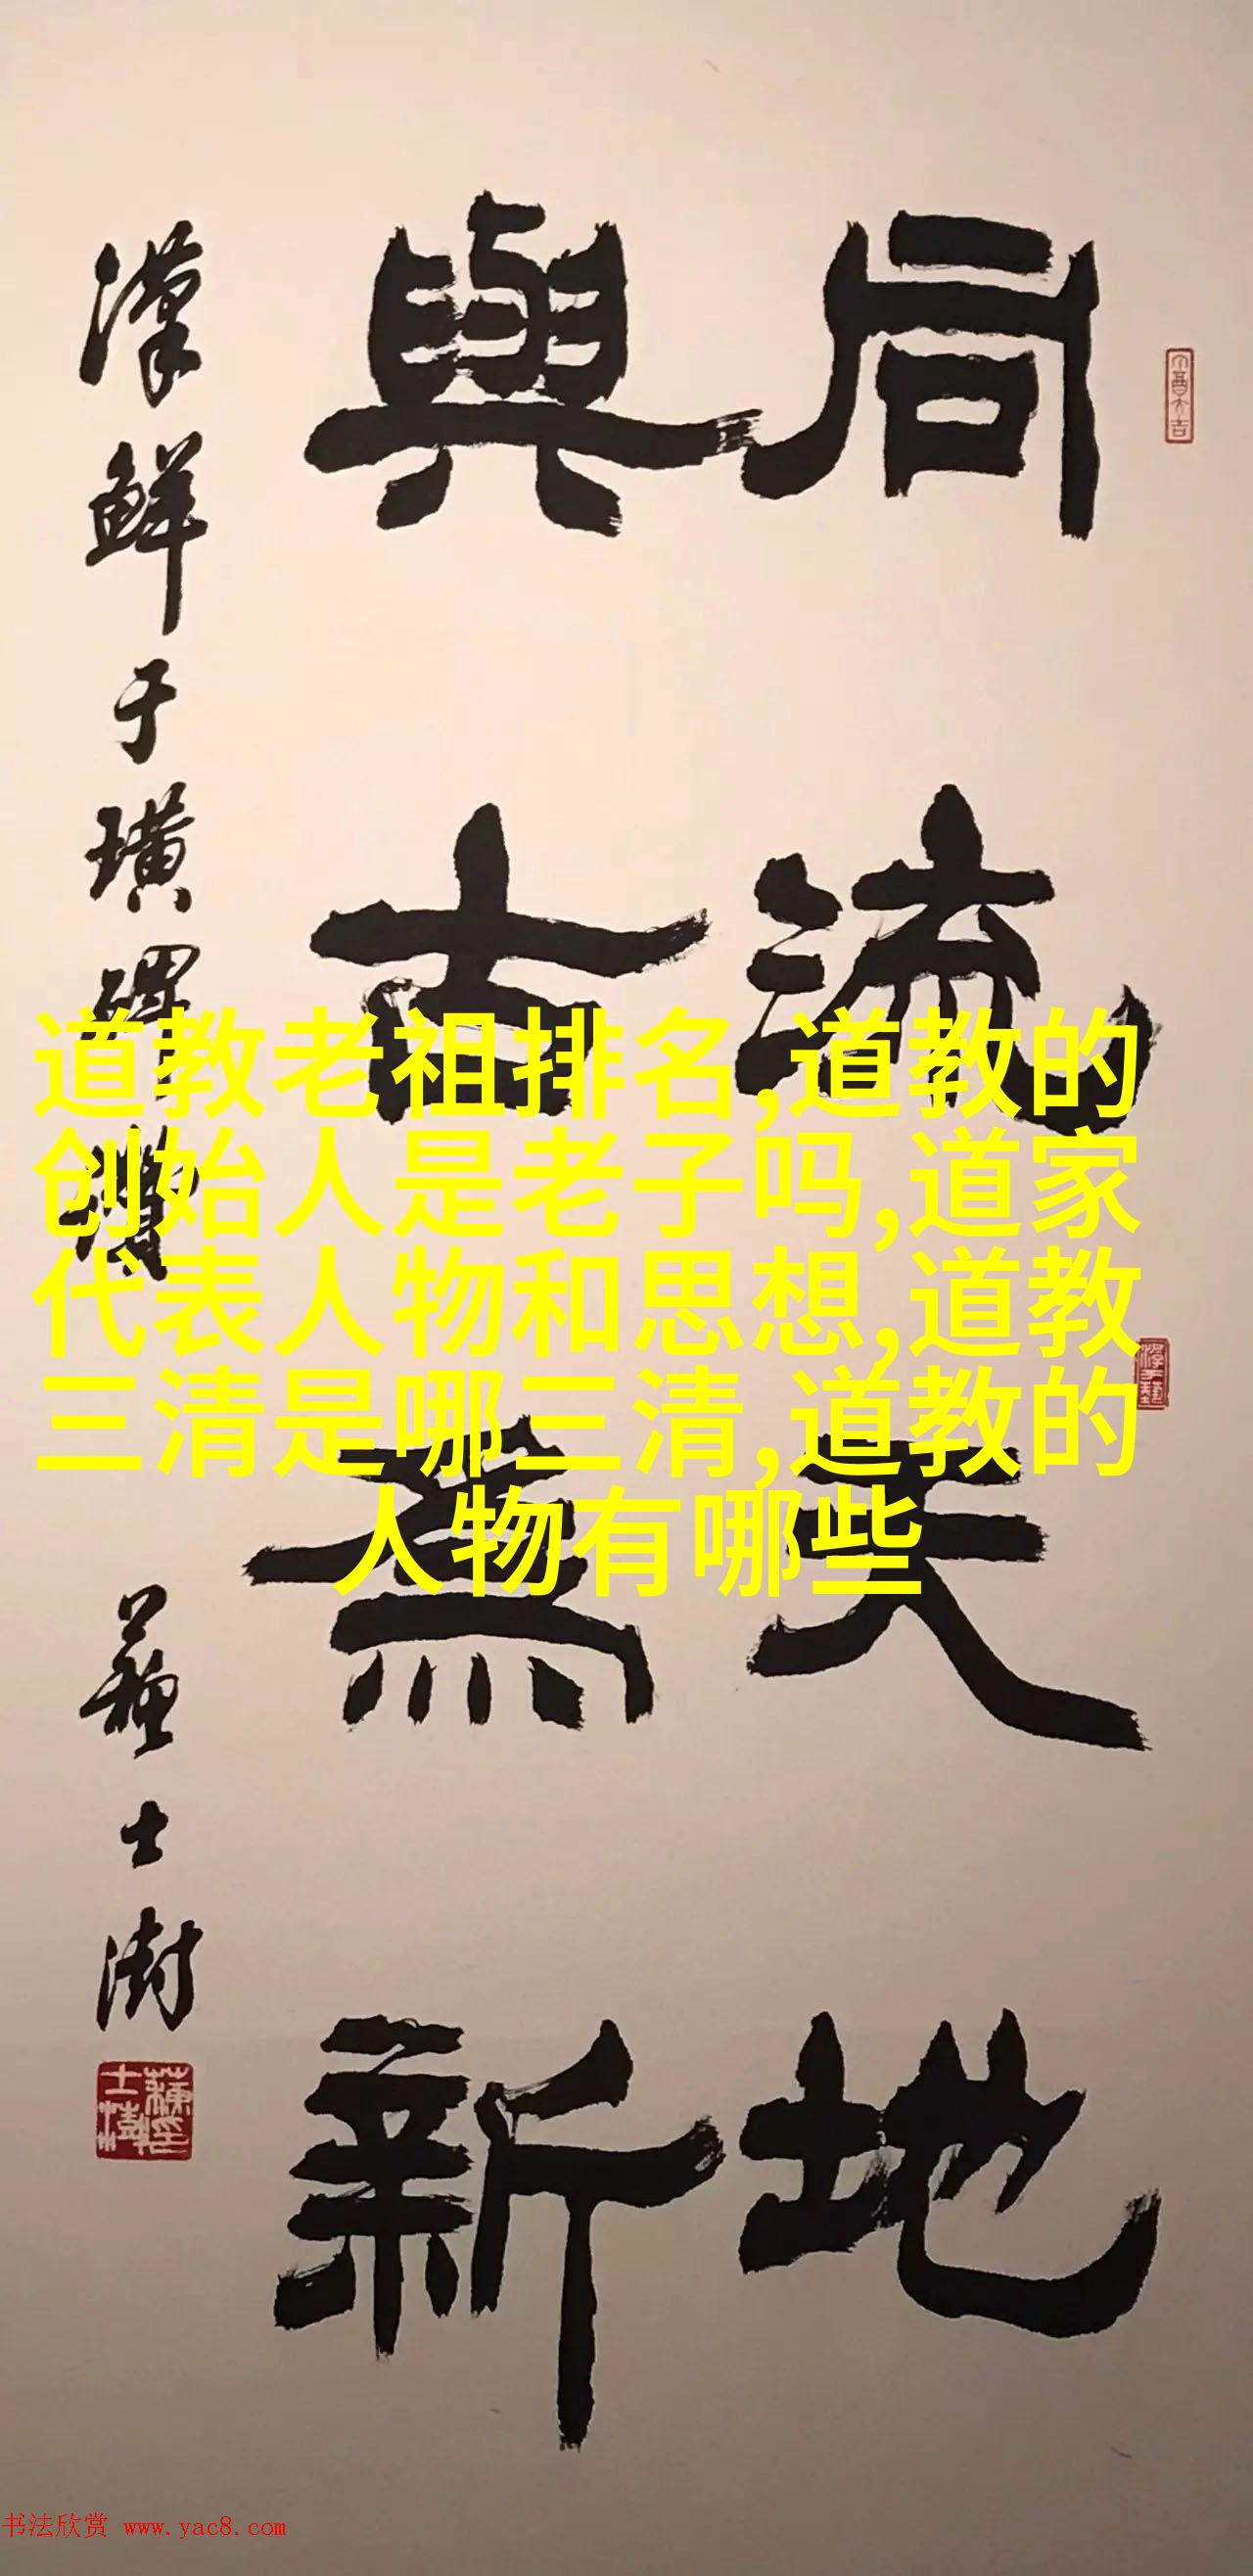 同流天地
與古為新
漢鮮于璜碑
蘇士澍
道教老祖排名,道教的
创始人是老子吗,道家
代表人物和思想,道教
三清是哪三清,道教的
人物有哪些
书法欣赏 www.yac8.com